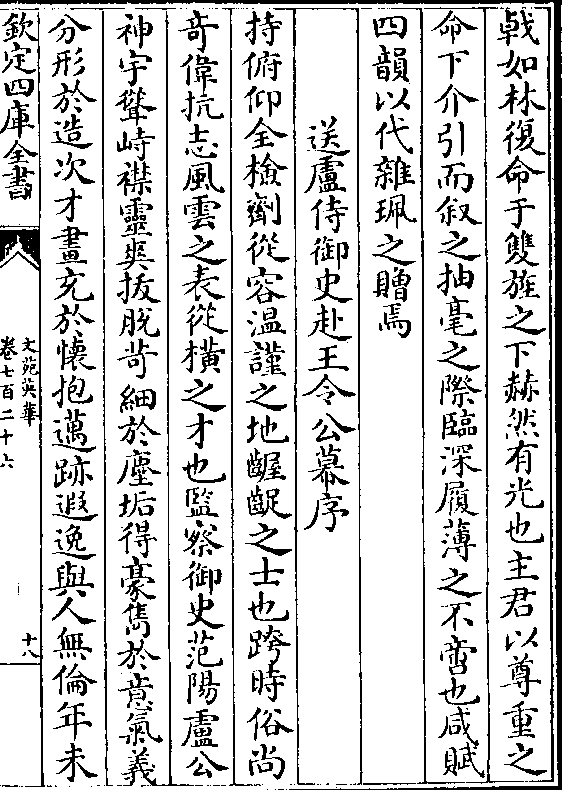 戟如林復命于雙旌之下赫然有光也主君以尊重之
命下介引而叙之抽毫之際臨深履薄之不啻也咸賦
四韻以代雜珮之贈焉
送盧侍御史赴王令公幕序
持俯仰全檢劑從容温謹之地齷齪之士也跨時俗尚
奇偉抗志風雲之表從横之才也監察御史范陽盧公
神宇聳峙襟靈爽拔脱苛細於塵垢得豪雋於意氣義
分形於造次才畫充於懷抱邁跡遐逸與人無倫年未
欽定四庫全書
文苑英華
卷七百二十六
十八